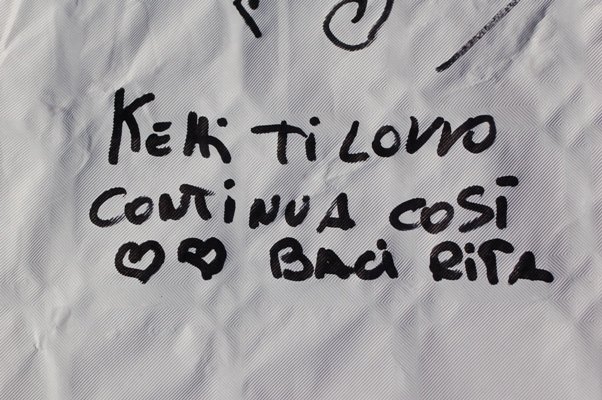 Ketti Ti LOVVO
CONTINUA COSÌ
BACI RITA